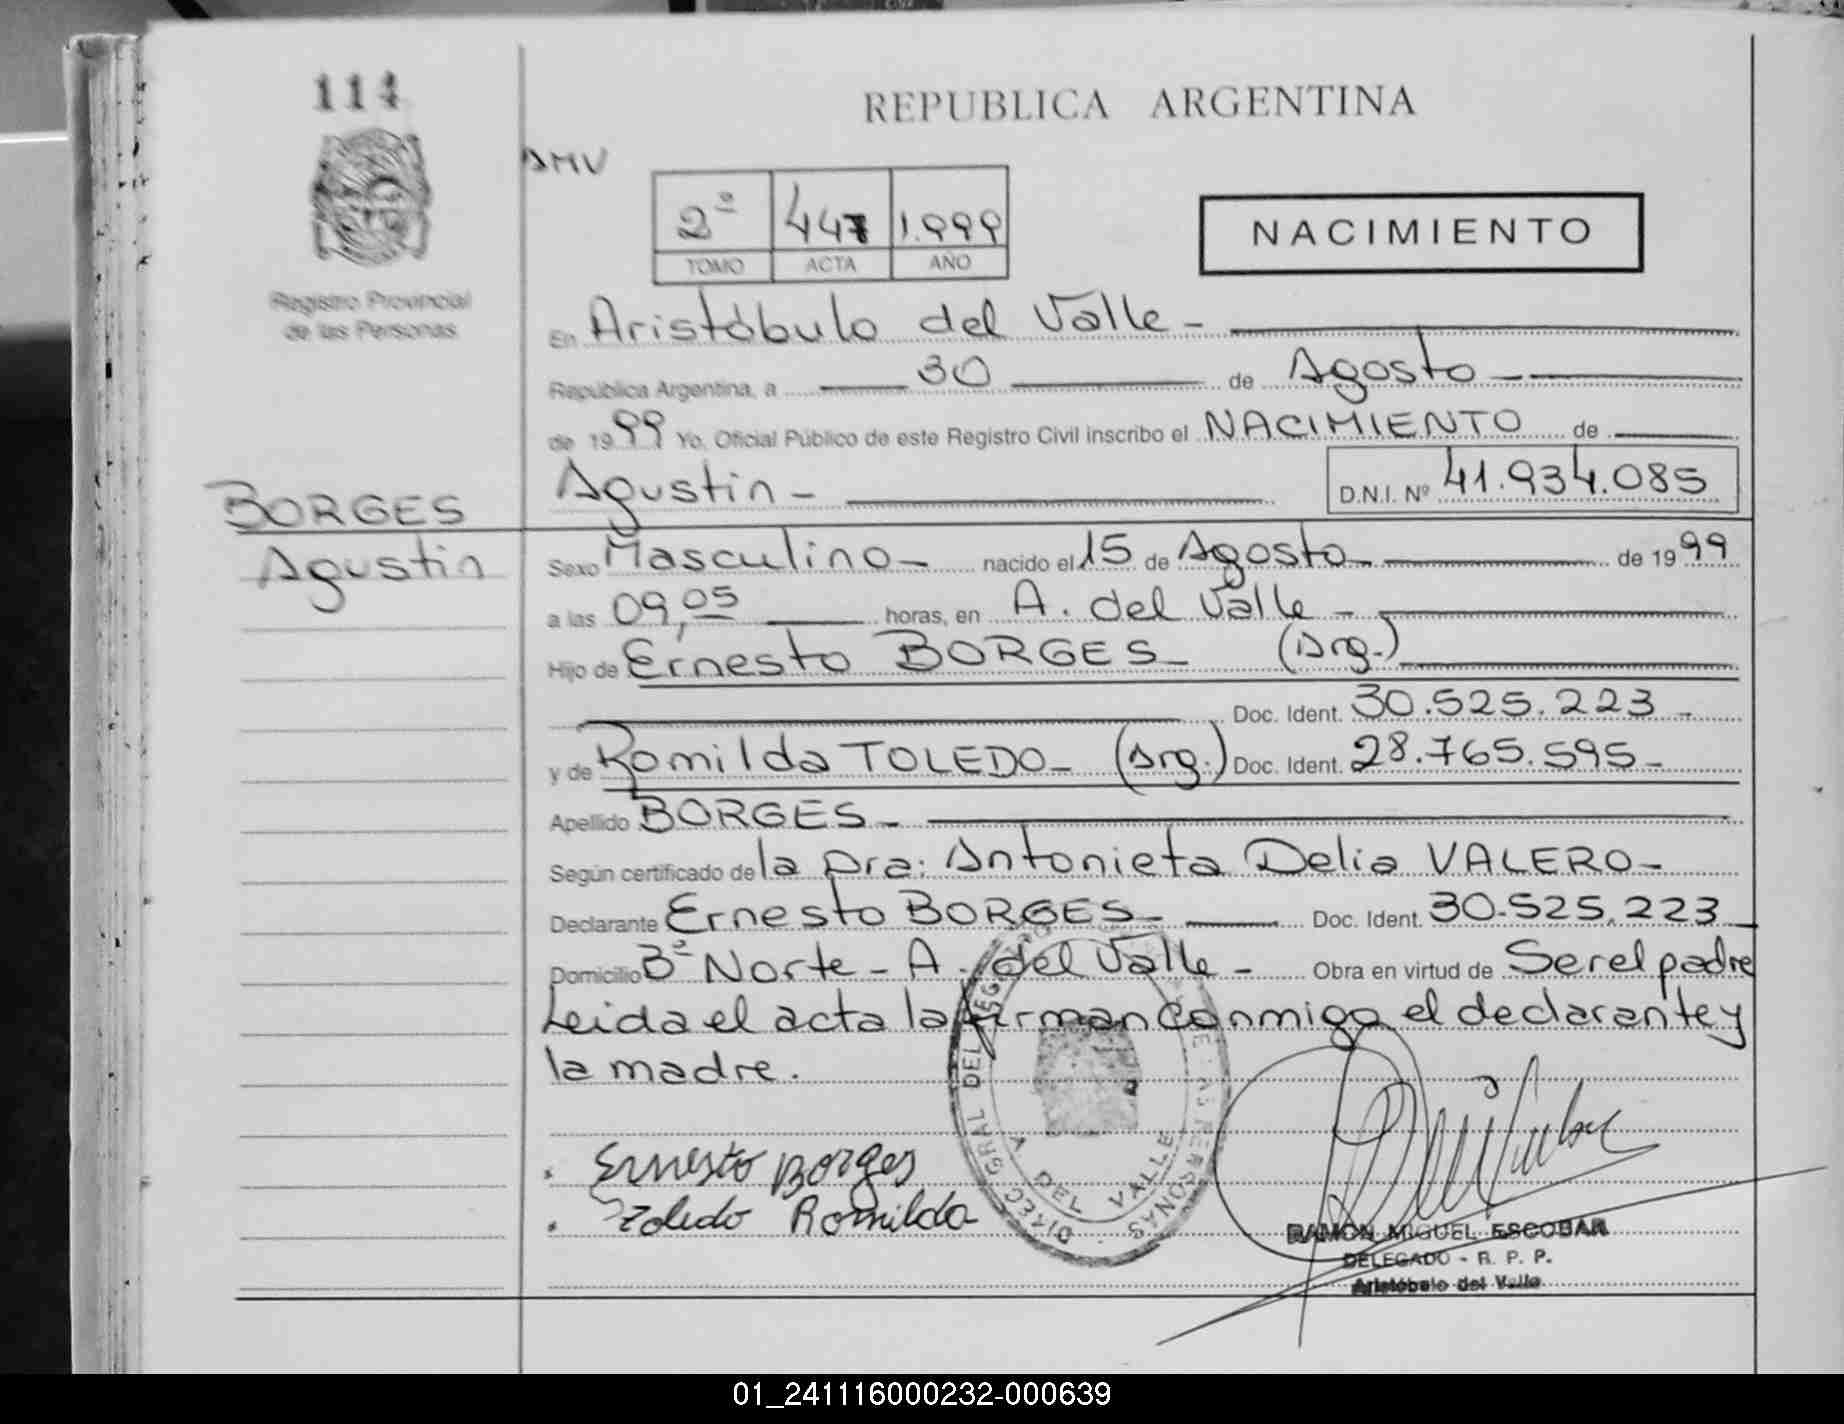 114
REPUBLICA ARGENTINA
AMV
2º 447 1.999
TOMO ACTA AÑO
NACIMIENTO
Registro Provincial
de las Personas
En Aristóbulo del Valle -
República Argentina, a 30 de Agosto -
de 1999 Yo, Oficial Público de este Registro Civil inscribo el NACIMIENTO de
Agustin - D.N.I. Nº 41.934.085
BORGES
Agustin
Sexo Masculino - nacido el 15 de Agosto - de 1999
a las 09,05 horas, en A. del Valle -
Hijo de Ernesto BORGES - (Arg.)
Doc. Ident. 30.525.223 -
y de Romilda TOLEDO - (Arg.) Doc. Ident. 28.765.595 -
Apellido BORGES -
Según certificado de la Dra: Antonieta Delia VALERO -
Declarante Ernesto BORGES - Doc. Ident. 30.525.223
Domicilio Bº Norte - A. del Valle - Obra en virtud de Ser el padre
Leida el acta la firman conmigo el declarante y
la madre.
Ernesto Borges
Toledo Romilda
DIREC GRAL DEL REG PERSONAS
A DEL VALLE
RAMON MIGUEL ESCOBAR
DELEGADO - R. P. P.
Aristóbulo del Valle
01_241116000232-000639